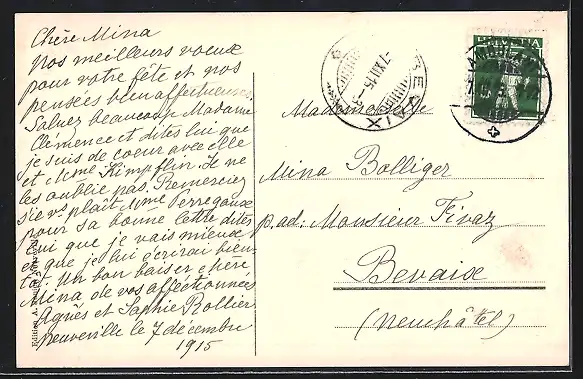 Chère Mina
nos meilleurs voeux
pour votre fête et nos
pensées bien affectueuses.
Saluez beaucoup Madame
Clémence et dites lui que
je suis de coeur avec elle
et Mme Kimpflin. Je ne
les oublie pas. Remerciez
s'il vs plaît Mme Perregaux
pour sa bonne lettre dites
lui que je vais mieux
et que je lui écrirai bien-
tôt. Un bon baiser chère
Mina de vos affectionnées
Agnès et Sophie Rollier
Neuveville le 7 décembre
1915
Mademoiselle
Mina Bolliger
p. ad: Monsieur Fivaz
Bevaix
(Neuchâtel)
HELVETIA
BEVAIX
Edition A.